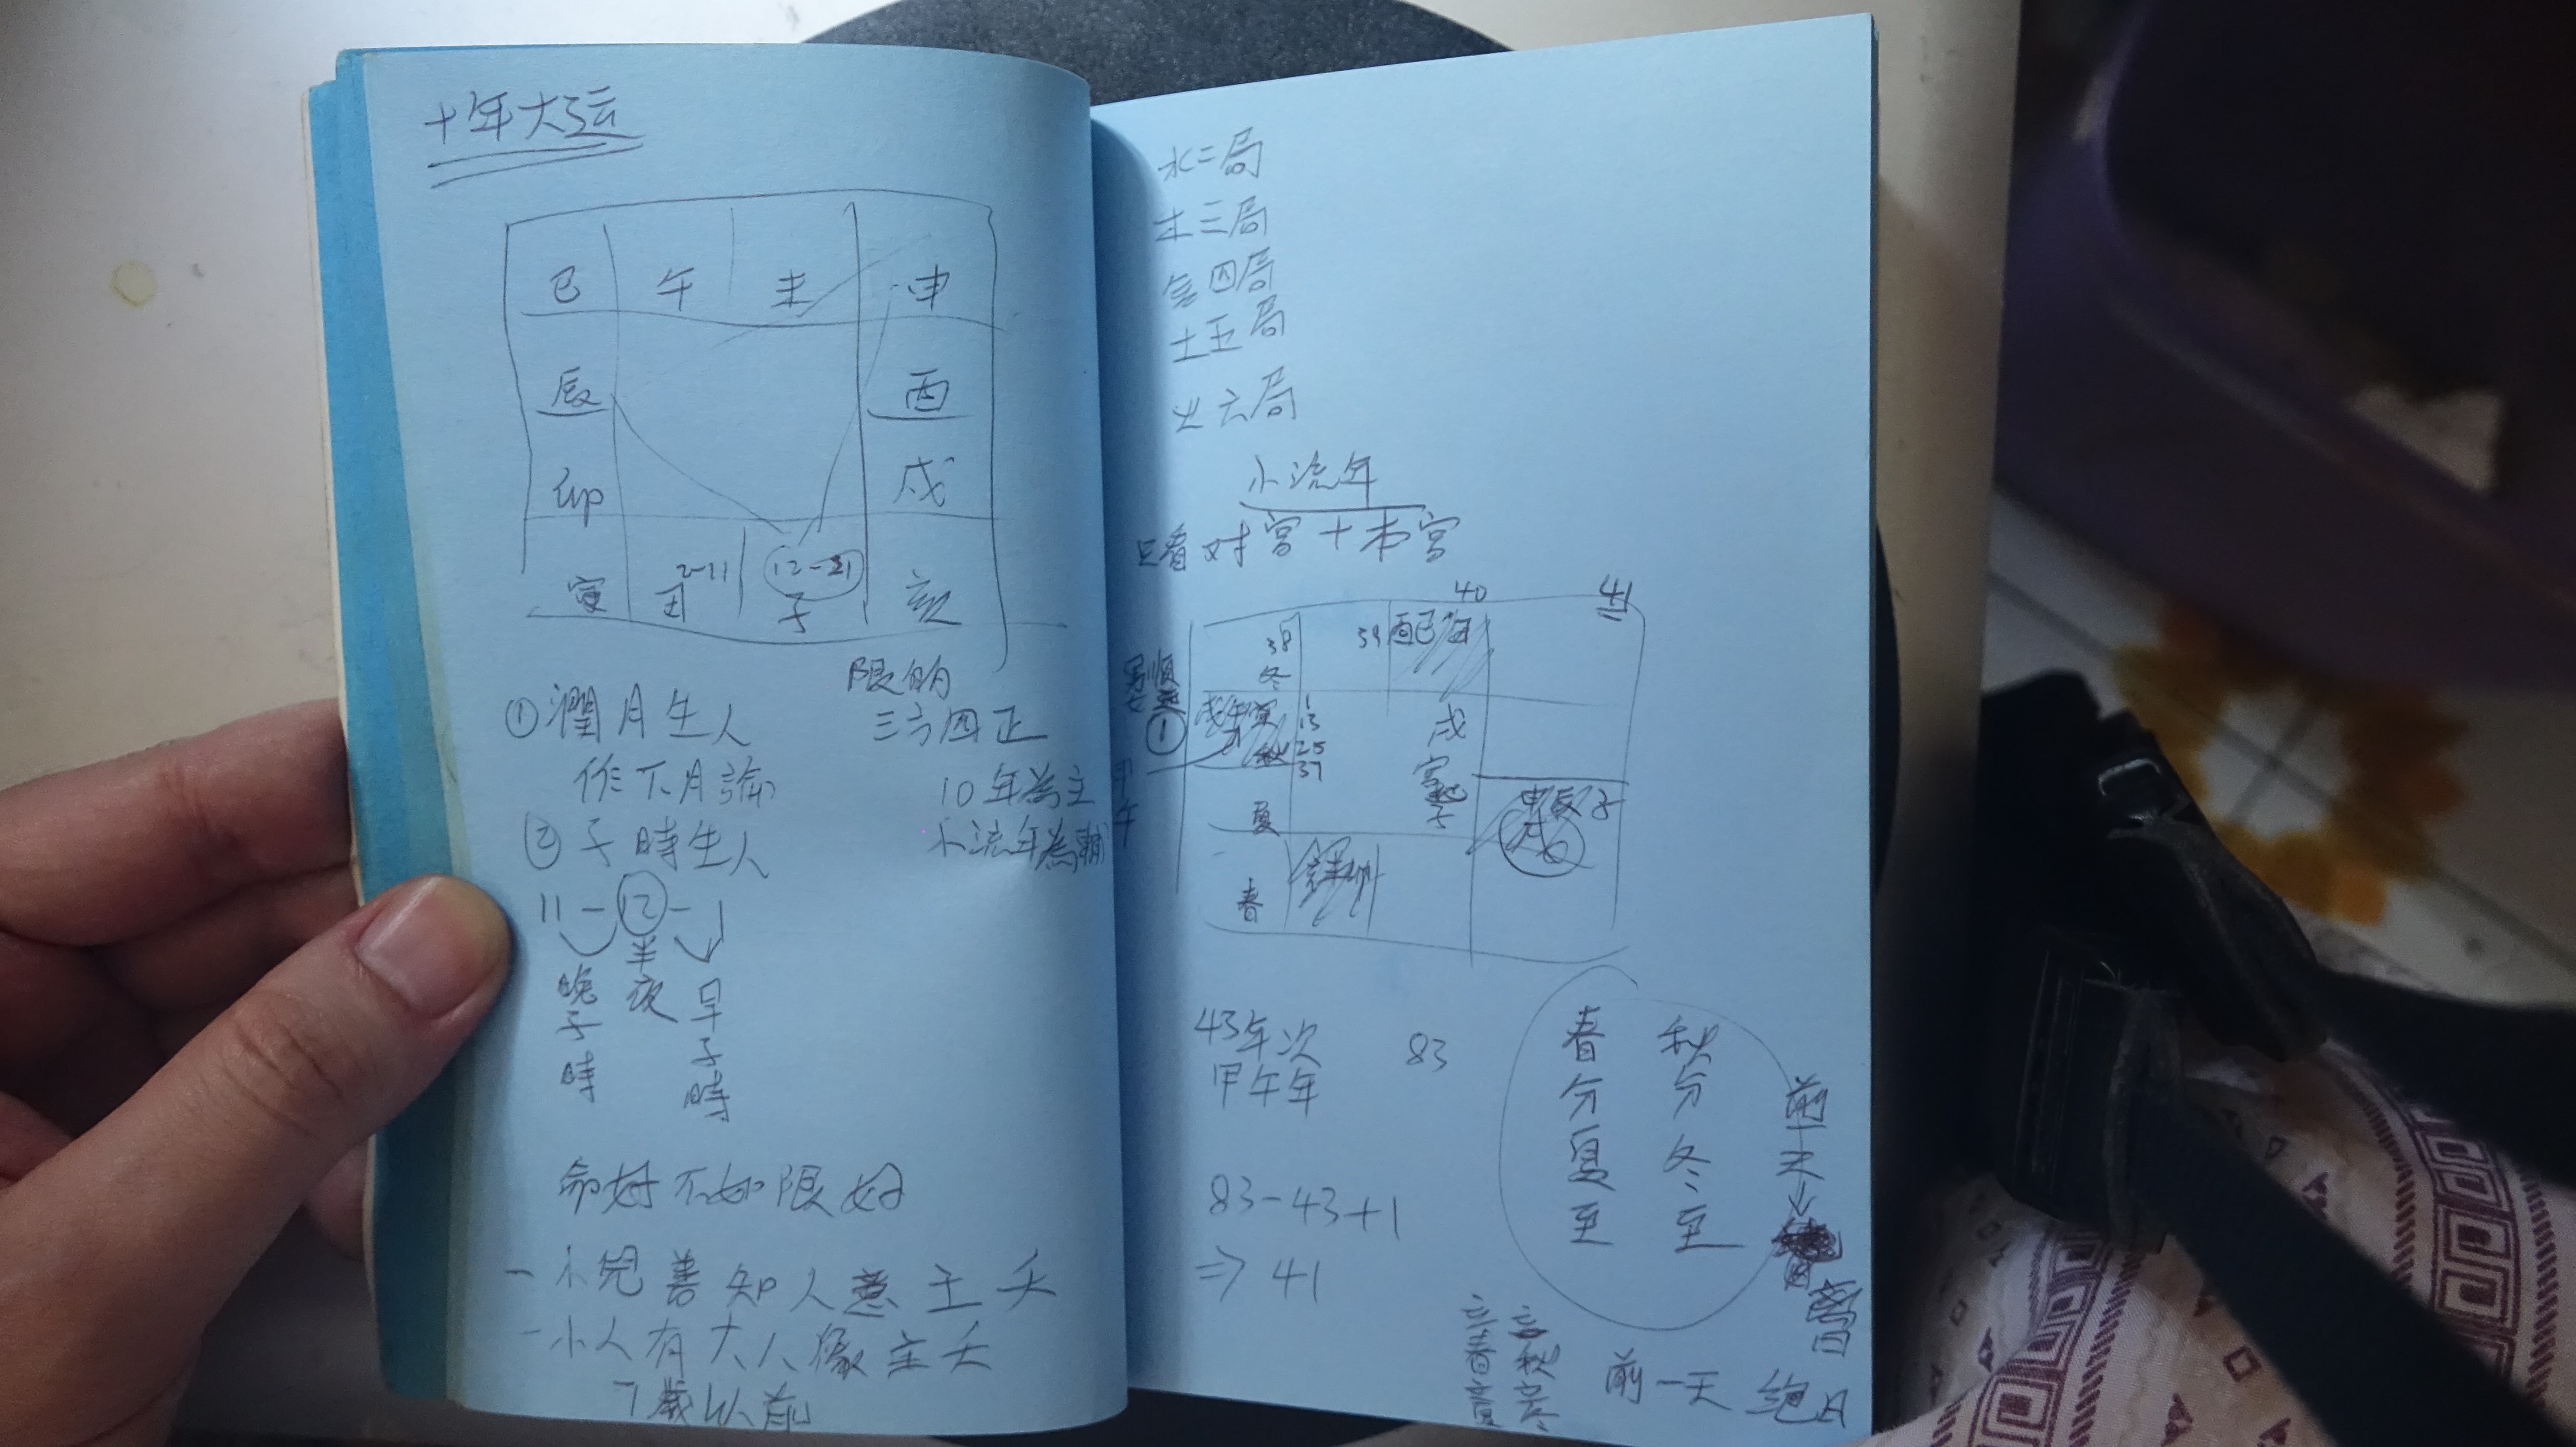 十年大运
巳 午 未 申
辰 酉
卯 戌
寅 丑 2-11 12-21 子 亥
①潤月生人
作下月論
②子時生人
11-12-1
晚子時
半夜
早子時
限的
三方四正
10年為主
小流年為輔
命好不如限好
-小兒善知人意主夭
-小人有大人像主夭
7歲以前
水二局
木三局
金四局
土五局
火六局
小流年
只看对宮+本宮
40 41
38 冬 39 酉巳丑
男順
①
戌午寅
秋
1
13
25
37
戌
宮起子
甲午
夏
申辰子
戌
春
亥未卯
43年次
甲午年
83
83-43+1
⇒ 41
春分夏至
秋分冬至
前一天↓
離日
立春立夏
立秋立冬
前一天 絕日